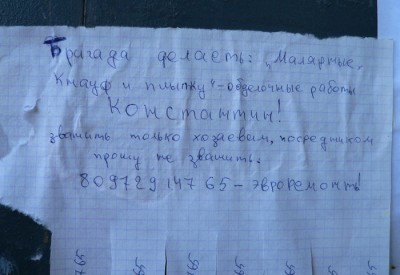 Бригада делает: „Малярные,
Кнауф и плытку“ - отделочные работы
Константин!
званить только хозаевам, посредником
прошу не званить.
80972914765 - Эвроремонт!